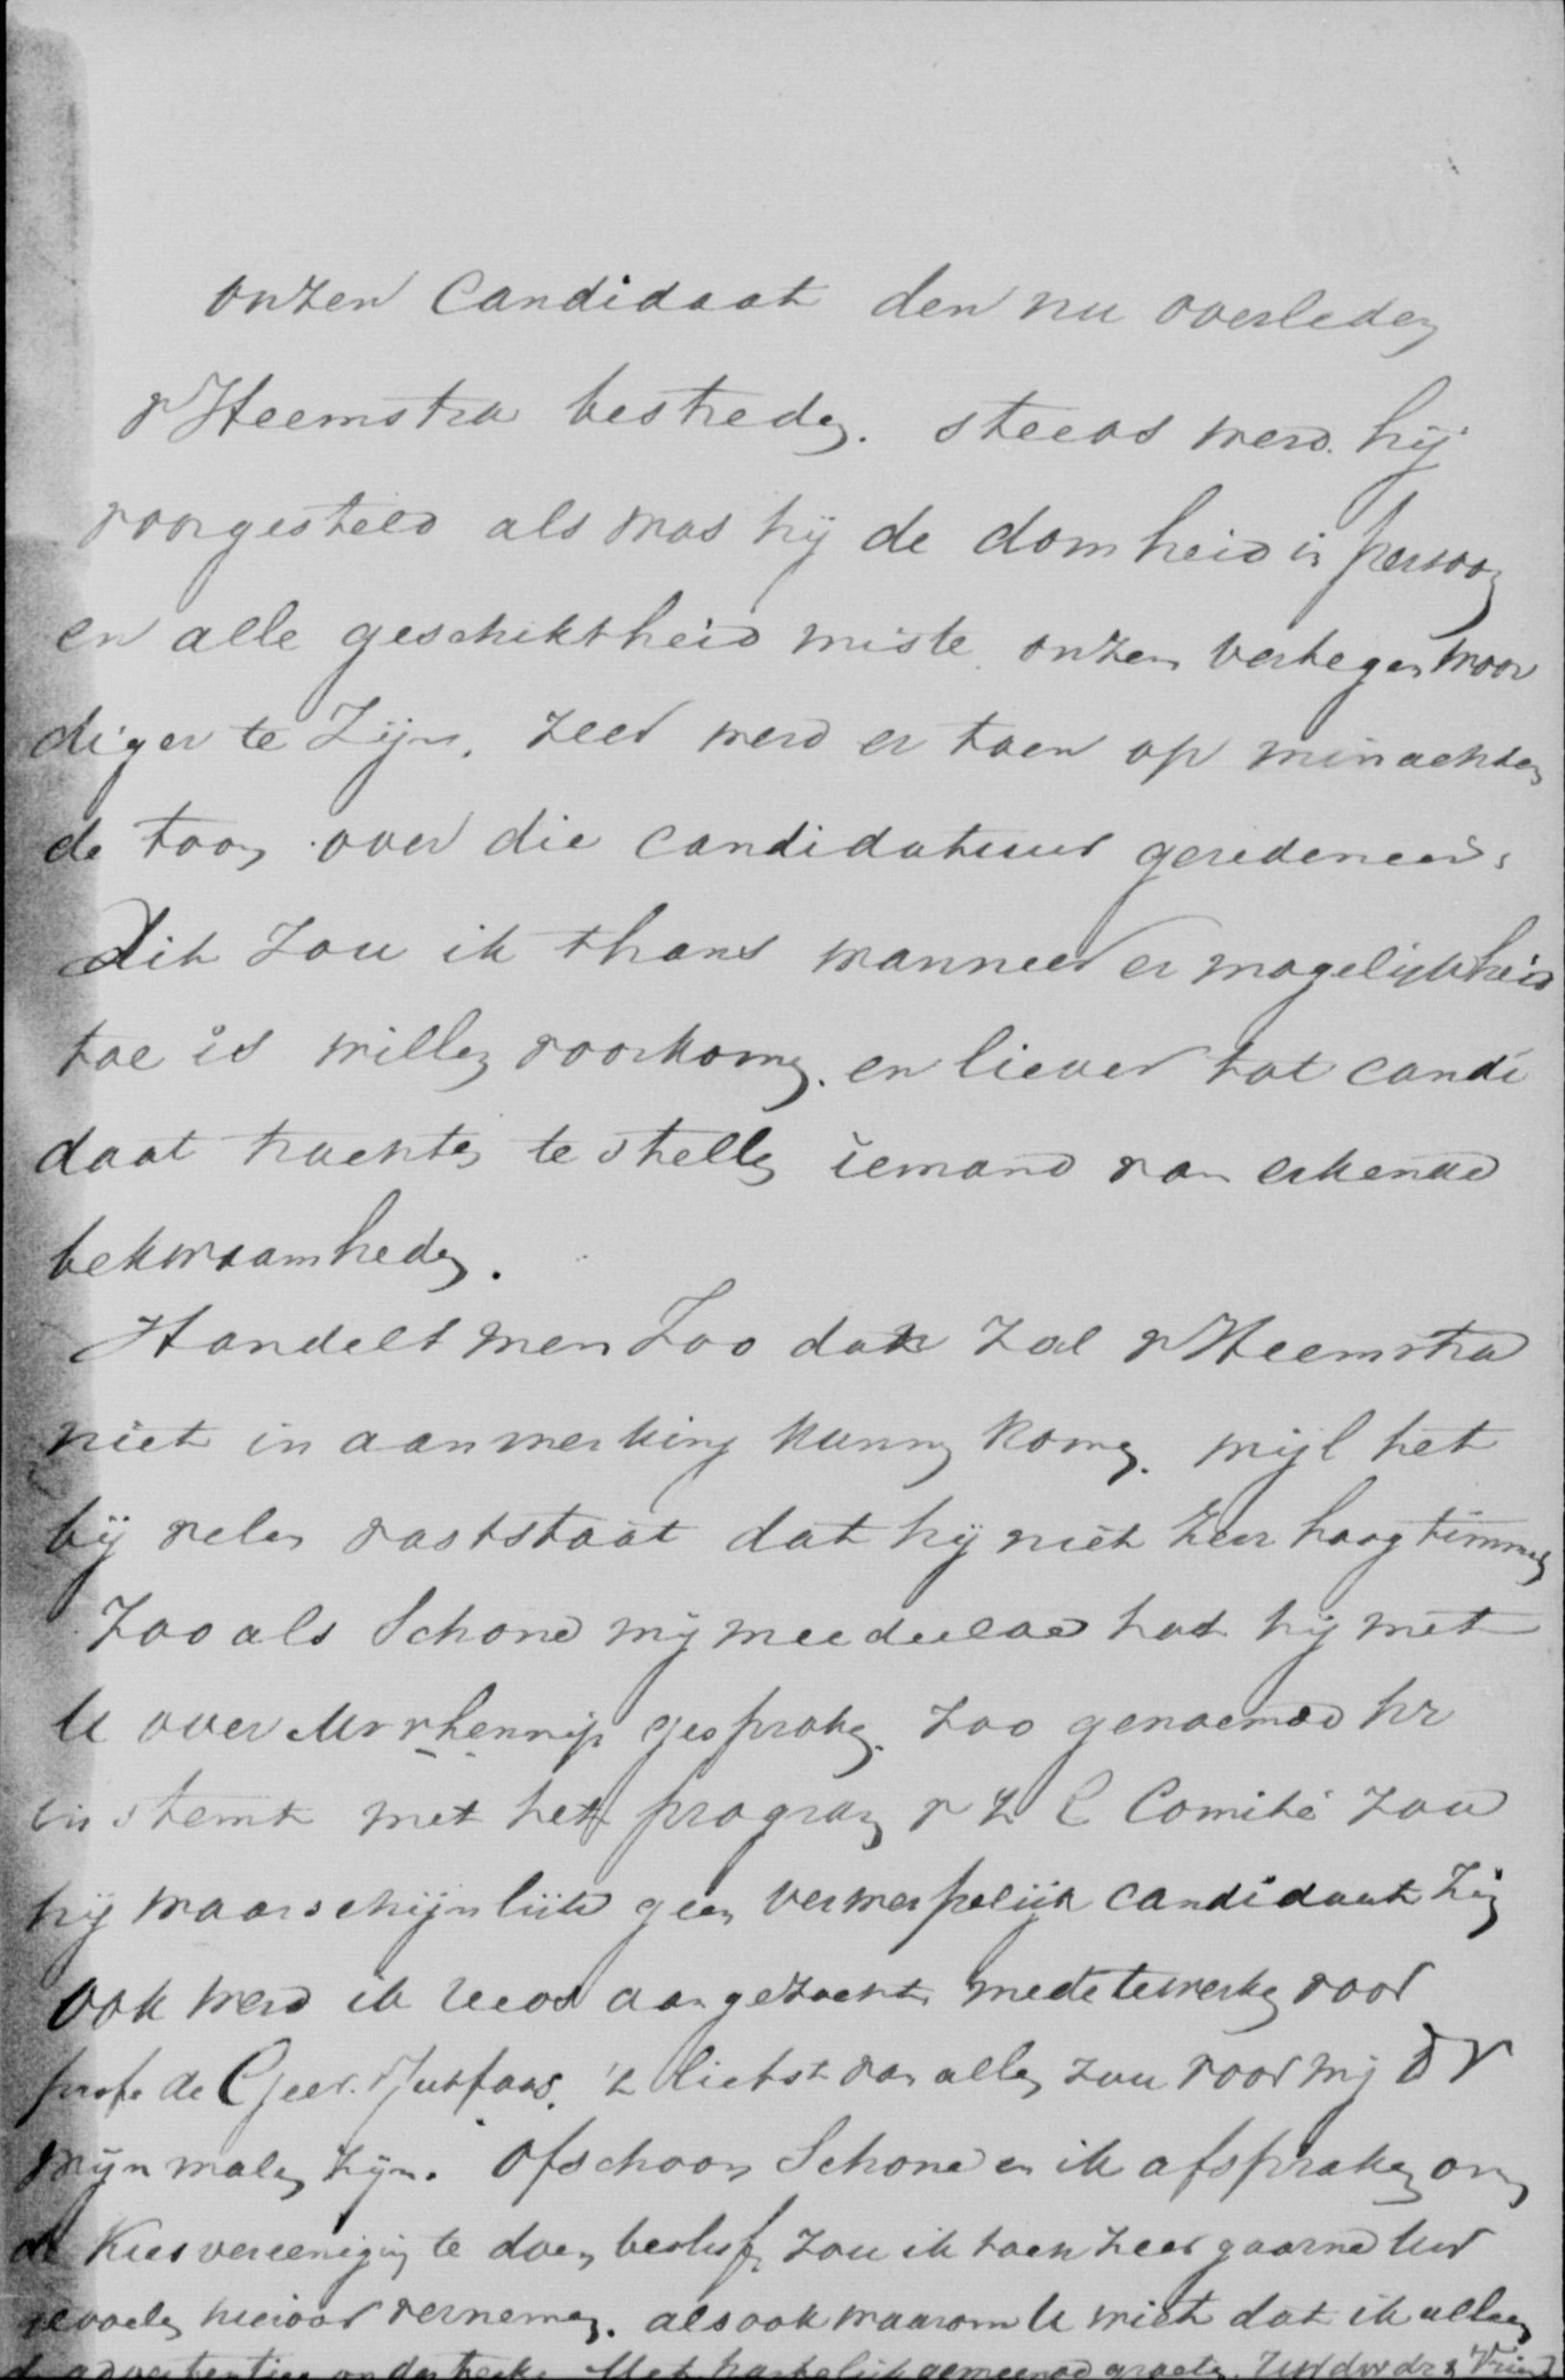 onzen Candidaat den nu overleden
v Heemstra bestreden. steeds werd hij
voorgesteld als was hij de domheid in persoon
en alle geschiktheid miste onzen vertegenwoor
diger te zijn. zeer werd er toen op minachten
de toon over die candidatuur geredeneerd.
Dit zou ik thans wanneer er mogelijkheid
toe is willen voorkomen. en liever tot candi
daat trachten te stellen iemand van erkende
bekwaamheden.
Handelt men zoo dan zal v Heemstra
niet in aanmerking kunnen komen. wijl het
bij velen vaststaat dat hij niet zeer hoog timmert
zooals Schone mij meedeelde had hij met
U over Mr v hennip gesproken. zoo genoemde hr
instemt met het program v h C Comité zou
hij waarschijnlijk geen verwerpelijk candidaat zijn
ook werd ik reeds aangezocht mede te werken voor
prof. de Geer. v Jutfaas. 't liefst van allen zou voor mij Dr
mijn malen zijn. Ofschoon Schone en ik afspraken om
de Kiesvereeniging te doen zou ik toch zeer gaarne Uw
gevoelen hierover vernemen. alsook waarom U wilt dat ik alleen
de advertentien onderteeken Met hartelijk gemeende groeten